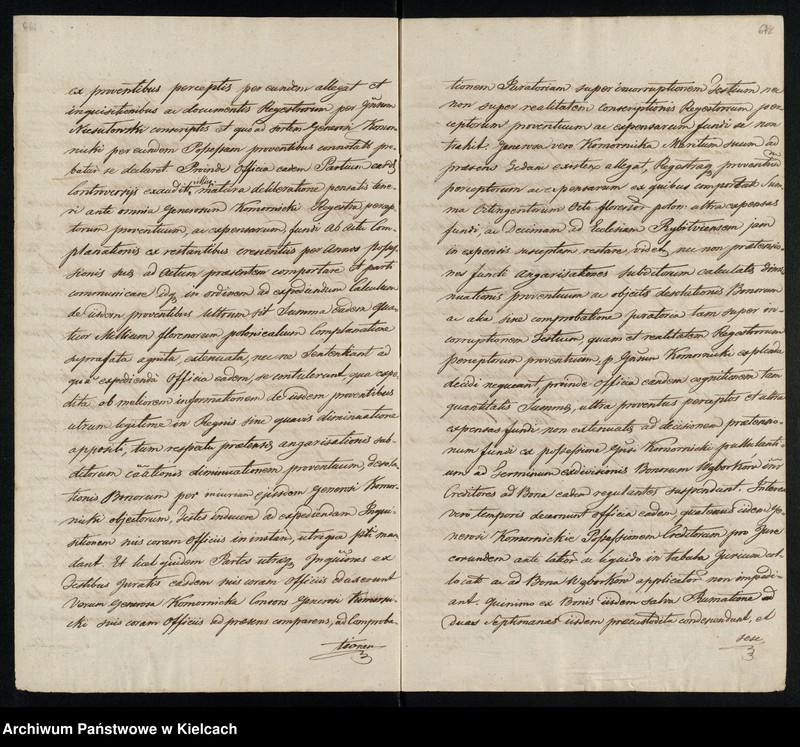 ex proventibus perceptis per eundem allegat et
inquisitionibus ac documentis Regestrorum per Gñsum
conscriptis et quoad sortem Generosi Komor-
nicki per eundem Possessam proventibus connotatis pro-
batur se declarat. Proinde Officia eadem Partium earūd
Controversijs exauditis, matura deliberatione pensatis
ante omnia Generosum Komornicki Regestra percep-
torum proventuum, ac expensarum fundi ab actu Com-
planationis ex restantibus crescentiis per Annos Posses-
sionis suæ ad Actum præsentem comportare et parti
communicare in ordinem ad expediendum Calculum
de iisdem proventibus utrum sit Summa eadem Qua-
tuor Mellium florenorum polonicalium Complanatione
suprafata agnita extenuata, nec ne Sententiant ad
quā expediendā Officia eadem, se contulerunt, qua expe-
dita ob meliorem informationem de iisdem proventibus
utrum legitime in Regnis sine quavis diminuatione
appositi, tum respectu prætensæ angarisationis sub-
ditorum diminuationem proventuum, desola-
tionis Bonorum per incuriam ejusdem Generosi Komor-
nicki objectorum, Testes inducere ad expediendam Inqui-
sitionem suis coram Officiis in instañ, utrique parti man-
dant. Et licet quidem Partes utræq Inq̃uõnes ex
Testibus Juratis easdem suis coram Officiis adduxerunt
Verum Generosa Komornicka Consors Generosi Komorni-
cki suis coram Officiis ad præsens comparens, ad Comproba-
tionem
tionem Juratoriam super incorruptionem Testium nec
non super realitatem conscriptionis Regestrorum per-
ceptorum proventuum ac expensarum fundi se non
trahit. Generosa vero Komornicka Maritum suum ad
præsens Gedani existere allegat, Regestraq proventuū
perceptorum ac expensarum ex quibus comportat Sum-
ma Octingentorum Octo florenor polon ultra expensas
fundi, ac Decimam ad Ecclesiam Rybitviensem jam
in expensis susceptam restare videt, nec non prætensio-
nes functi angarisationes subditorum calculatis dimi-
nuationis proventuum ac objectis desolationis Bonorum
ac alia sine comprobatione juratoria tam super in-
corruptionem Testium, quam et realitatem Regestrorum
perceptorum proventuum, p. Gñsum Komornicki explenda
decidi nequeant, proinde Officia eandem cognitionem tam
quantitatis Summæ, ultra proventus perceptos et ultra
expensas fundi non extenuatæ, ad decisionem prætensio-
num fundi ex possessione Gñsi Komornicki pullulanti-
um ad Terminum exdivisionis Bonorum Wgborkow
Creditores ad Bona eadem regulantes suspendunt. Interea
vero temporis decernunt officia eadem quatenus iidem Ge-
nerosi Komornickie Possessionem Creditorum pro Jure
eorundem ante latior ac liquido in tabula Jurium col-
locati ac ad Bona Wgborkow applicator non impedi-
ant. Quinimo ex Bonis iisdem salva Rumatione ad
duas Septimanas iisdem præcustodita condescendant, et
sese